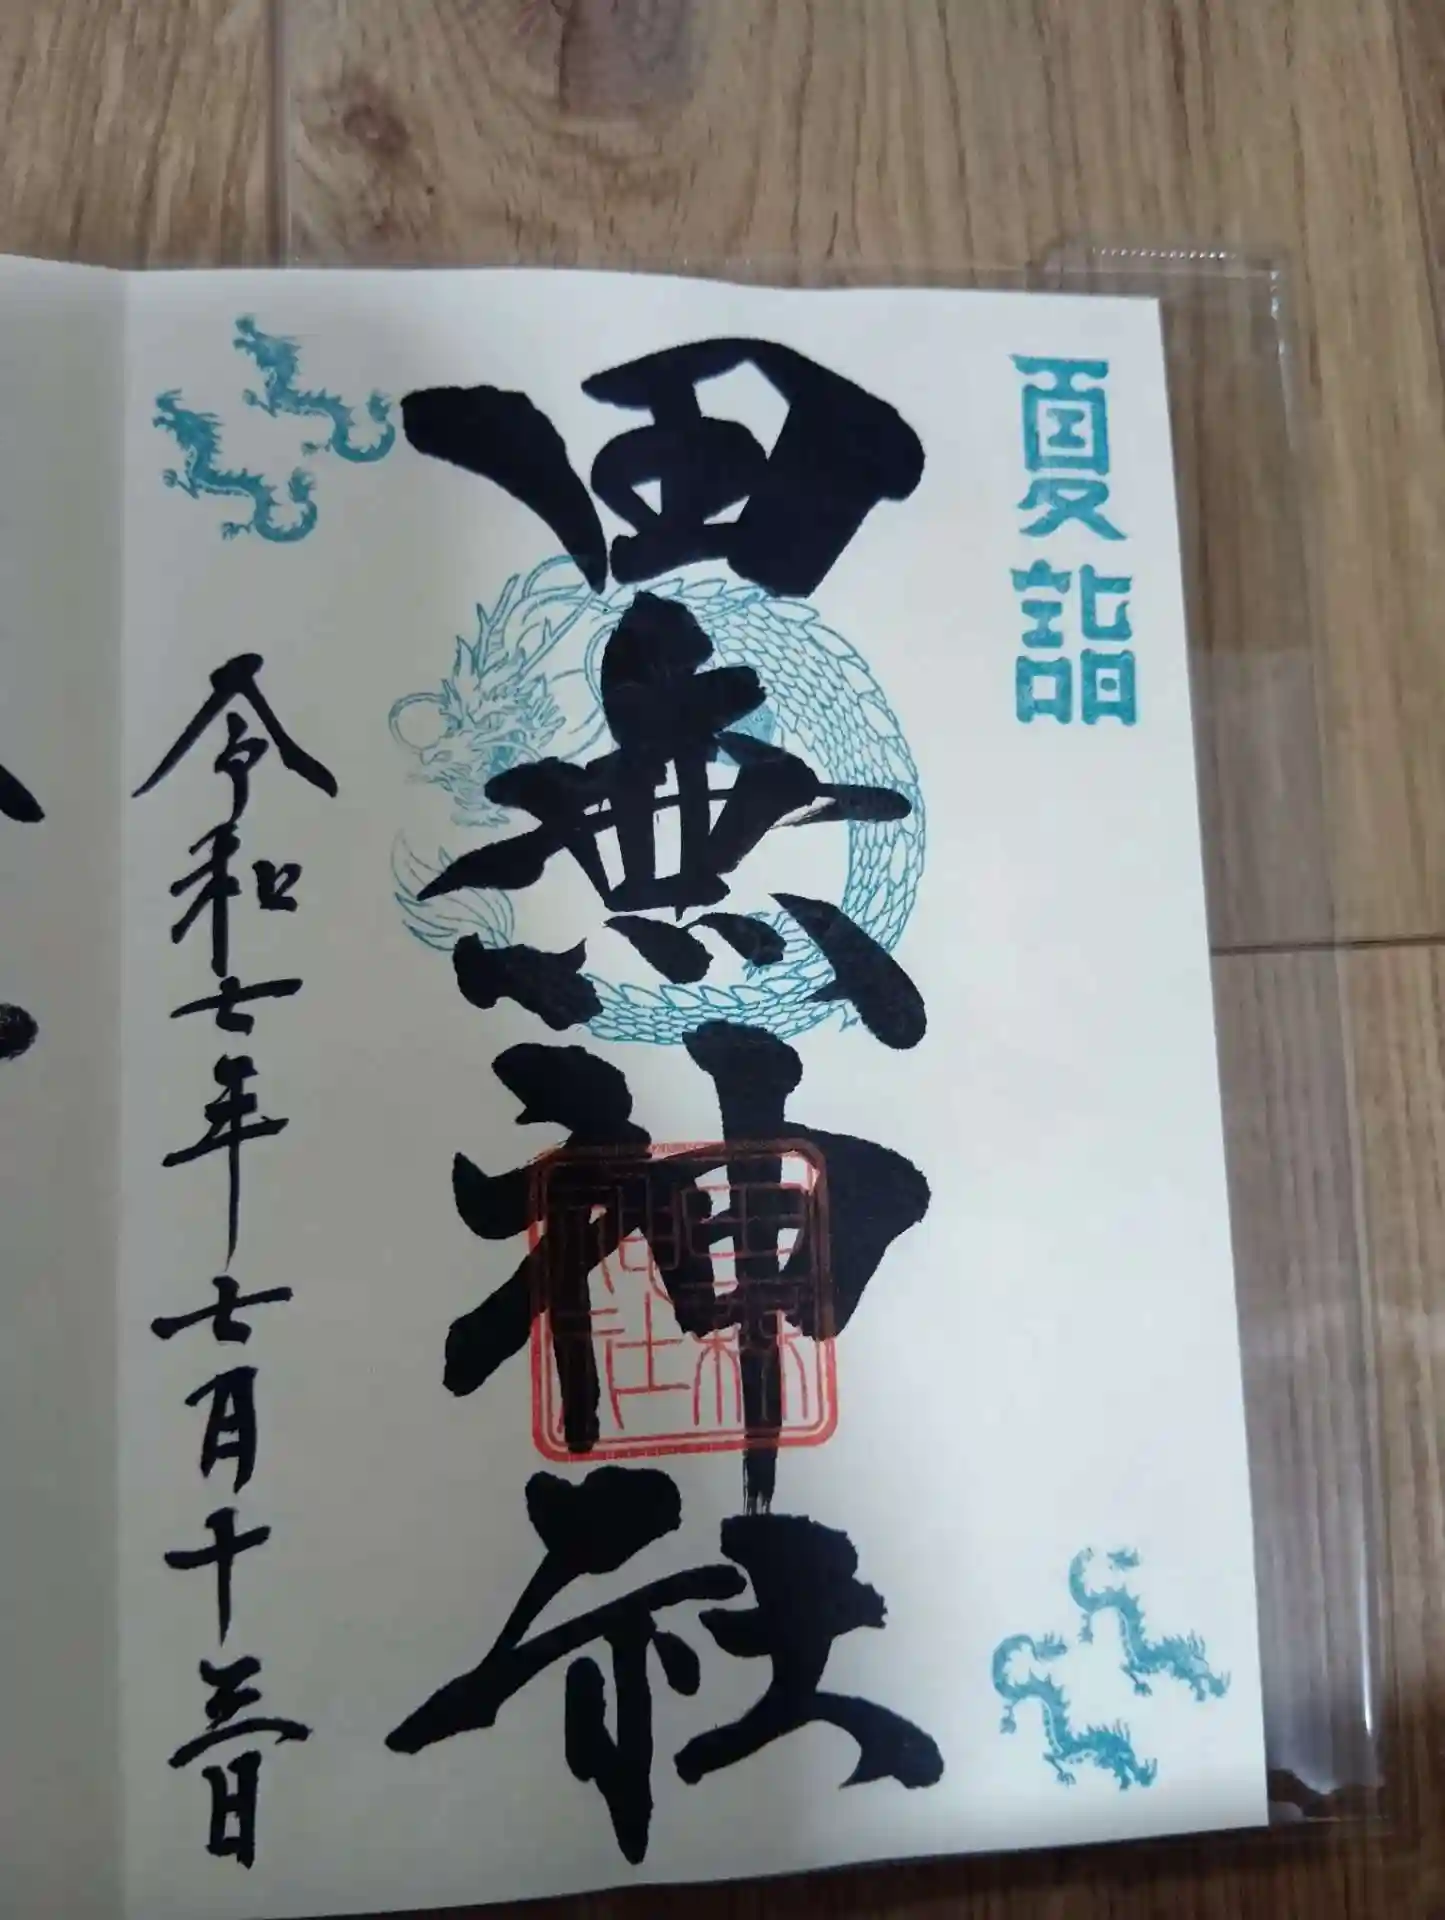 夏詣
田無神社
令和七年七月十三日